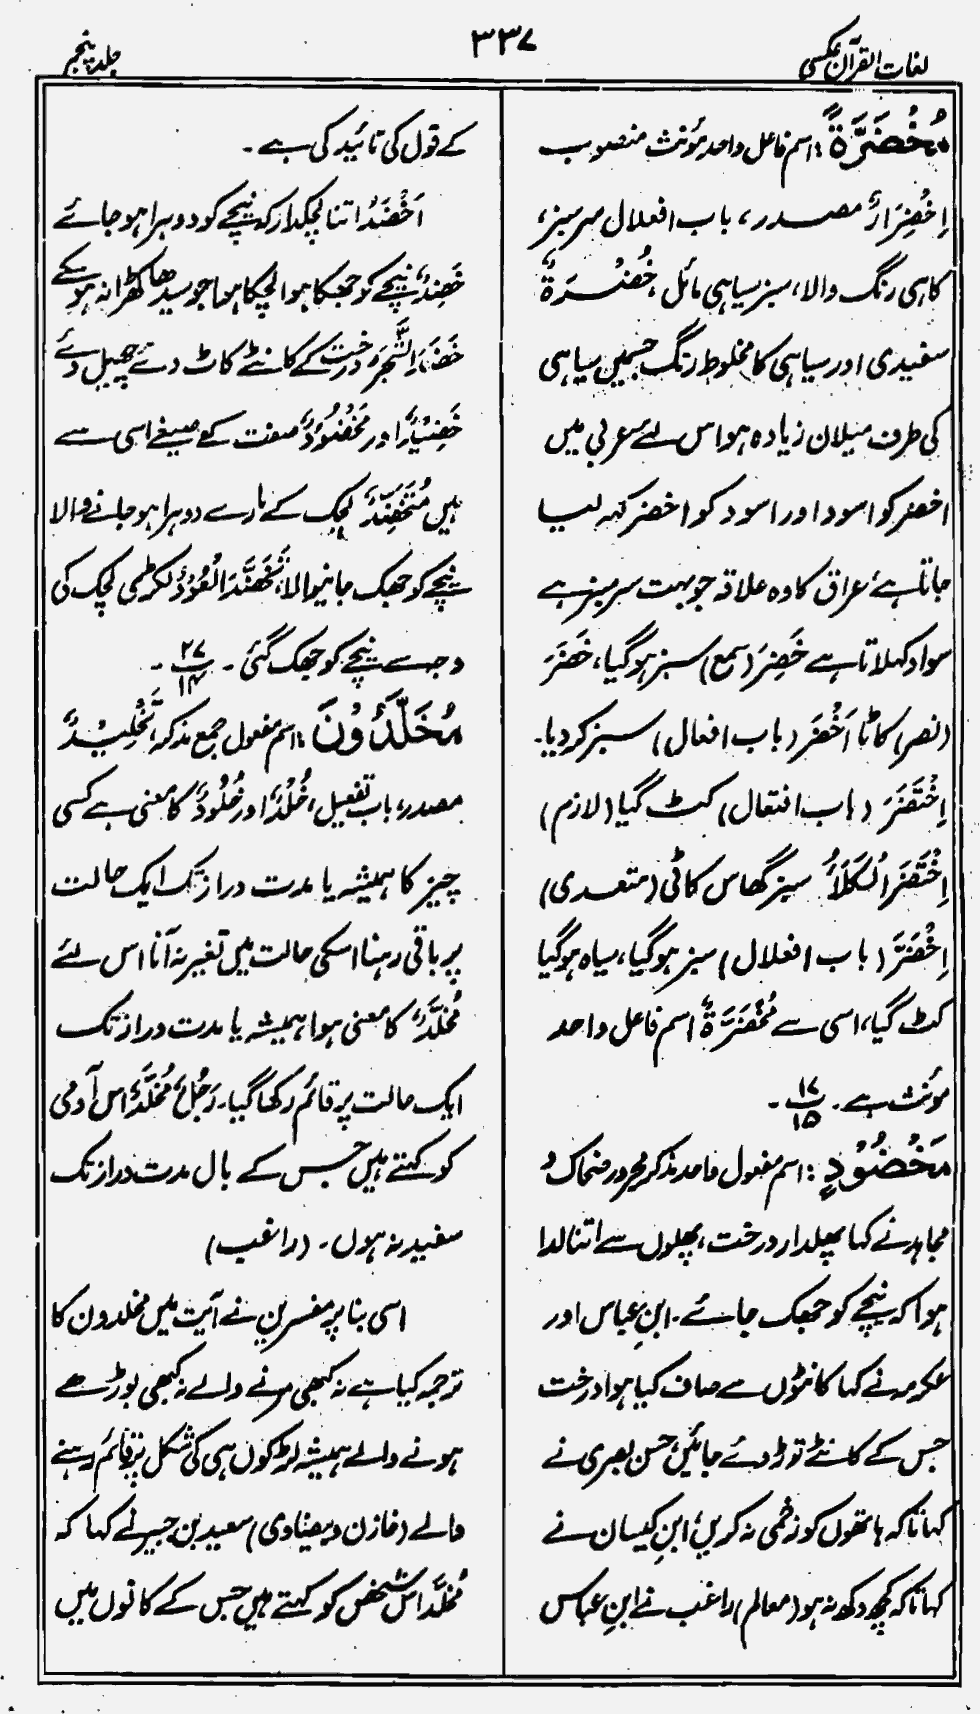 لغات القرآن عکسی
۳۳۷
جلد پنجم
مُخْضَرَّةً: اسم فاعل واحد مؤنث منصوب
اِخْضِرَارٌ مصدر، باب افعلال سرسبز،
کاہی رنگ والا، سبز سیاہی مائل خُضْرَةٌ
سفیدی اور سیاہی کا مخلوط رنگ جسمیں سیاہی
کی طرف میلان زیادہ ہو اس لئے عربی میں
اخضر کو اسود اور اسود کو اخضر کہہ لیا
جاتا ہے عراق کا وہ علاقہ جو بہت سرسبز ہے
سواد کہلاتا ہے خَضِرَ (سمع) سبز ہو گیا، خَضَرَ
(نصر) کاٹا اَخْضَرَ (باب افعال) سبز کر دیا۔
اِخْتَضَرَ (باب افتعال) کٹ گیا (لازم)
اِخْتَضَرَ الْکَلَأَ سبز گھاس کاٹی (متعدی)
اِخْضَرَّ (باب افعلال) سبز ہو گیا، سیاہ ہو گیا
کٹ گیا، اسی سے مُخْضَرَّةٌ اسم فاعل واحد
مؤنث ہے۔ ۱۷/۱۵۔
مَخْضُوْدٍ: اسم مفعول واحد مذکر مجرور ضحاک و
مجاہد نے کہا پھلدار درخت، پھلوں سے اتنا لدا
ہوا کہ نیچے کو جھک جائے۔ ابن عباس اور
عکرمہ نے کہا کانٹوں سے صاف کیا ہوا درخت
جس کے کانٹے توڑ دئے جائیں حسن بصری نے
کہا تاکہ ہاتھوں کو زخمی نہ کریں ابن کیسان نے
کہا تاکہ کچھ دکھ نہ ہو (معالم) راغب نے ابن عباس
کے قول کی تائید کی ہے۔
اَخْضَدُ اتنا لچکدار کہ نیچے کو دوہرا ہو جائے
خَضِدٌ نیچے کو جھکا ہوا لچکا ہوا جو سیدھا کھڑا نہ ہو سکے
خَضَدَ الشَّجَرَ درخت کے کانٹے کاٹ دئے چھیل دئے
خَضِيْدٌ اور مَخْضُوْدٌ صفت کے صیغے اسی سے
ہیں مُتَخَضِّدٌ لچک کے مارے دوہرا ہو جانے والا
نیچے کو جھک جانیوالا، تَخَضَّدَ الْعُوْدُ لکڑی لچک کی
وجہ سے نیچے کو جھک گئی۔ ۲۷/۱۴۔
مُخَلَّدُوْنَ: اسم مفعول جمع مذکر، تَخْلِيْدٌ
مصدر، باب تفعیل، خُلْدٌ اور خُلُوْدٌ کا معنی ہے کسی
چیز کا ہمیشہ یا مدت دراز تک ایک حالت
پر باقی رہنا اسکی حالت میں تغیر نہ آنا اس لئے
مُخَلَّدٌ کا معنی ہوا ہمیشہ یا مدت دراز تک
ایک حالت پر قائم رکھا گیا۔ رَجُلٌ مُخَلَّدٌ اس آدمی
کو کہتے ہیں جس کے بال مدت دراز تک
سفید نہ ہوں۔ (راغب)
اسی بنا پر مفسرین نے آیت میں مخلدون کا
ترجمہ کیا ہے نہ کبھی مرنے والے نہ کبھی بوڑھے
ہونے والے ہمیشہ لڑکوں ہی کی شکل پر قائم رہنے
والے (خازن و بیضاوی) سعید بن جبیر نے کہا کہ
مُخَلَّد اس شخص کو کہتے ہیں جس کے کانوں میں